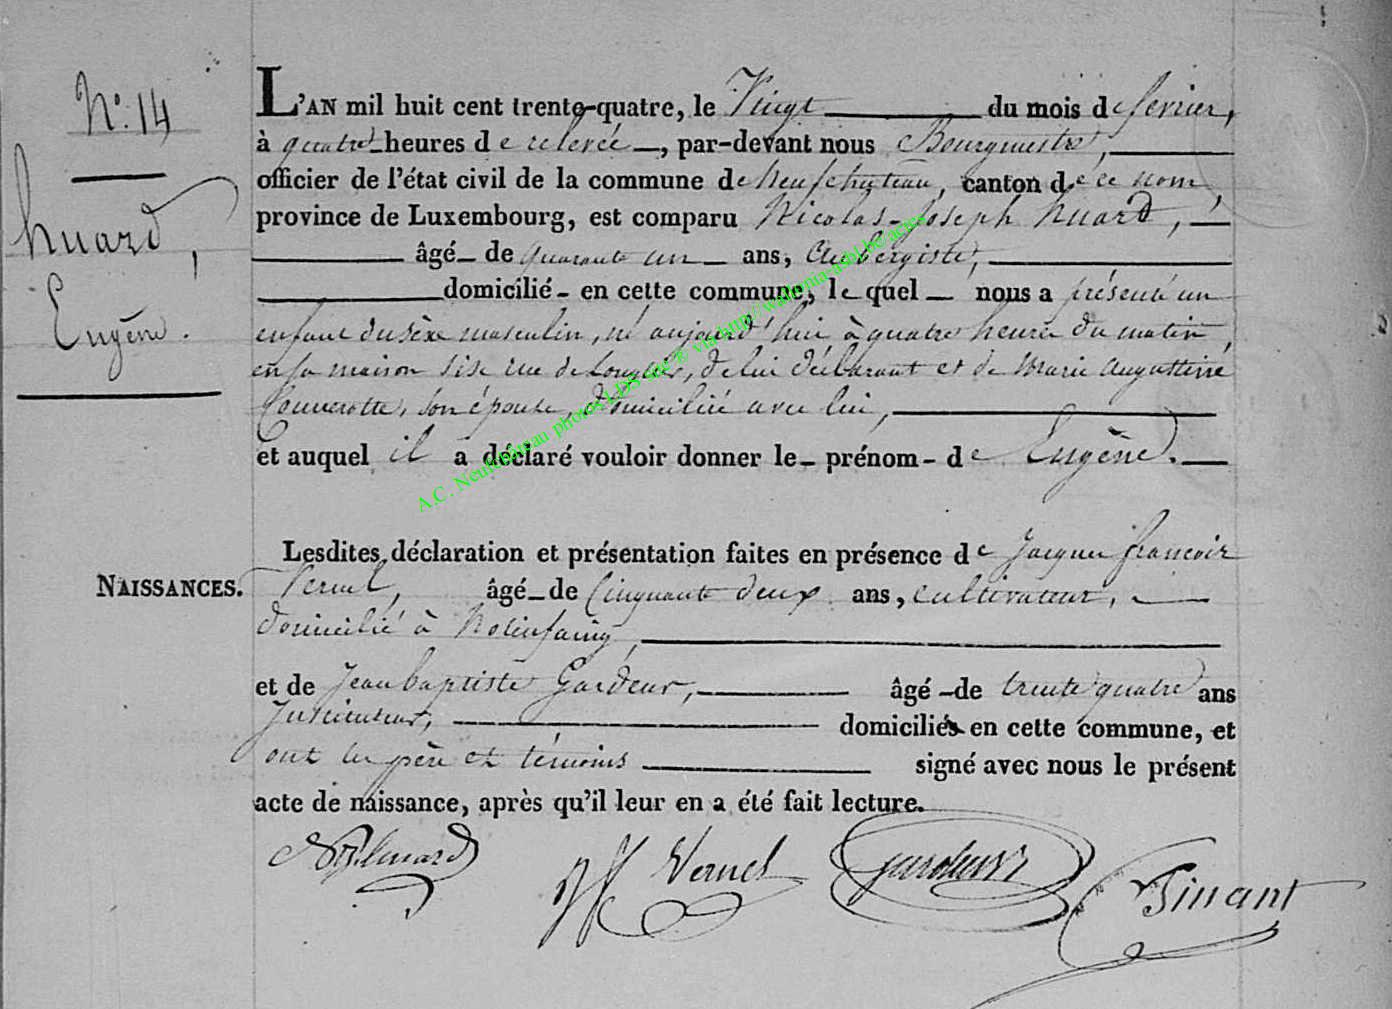 N°. 14
huard,
Eugène.
NAISSANCES.
L'AN mil huit cent trente-quatre, le Vingt du mois de fevrier,
à quatre heures de relevée, par-devant nous Bourgmestre,
officier de l'état civil de la commune de Neufchateau, canton de ce nom,
province de Luxembourg, est comparu Nicolas-Joseph huard,
âgé de quarante un ans, Aubergiste,
domicilié en cette commune, lequel nous a présenté un
enfant du sèxe masculin, né aujourd'hui à quatre heures du matin,
en sa maison sise rue de Longlier, de lui déclarant et de Marie Augustine
Couverotte, son épouse, domiciliée avec lui,
et auquel il a déclaré vouloir donner le prénom de Eugène.
Lesdites déclaration et présentation faites en présence de Jacques francois
Vernel, âgé de Cinquante deux ans, cultivateur,
domicilié à Molinfaing,
et de Jean baptiste Gardeur, âgé de trente quatre ans
domiciliés en cette commune, et
ont les père et témoins signé avec nous le présent
acte de naissance, après qu'il leur en a été fait lecture.
NJ. huard
JF Vernel
gardeur
Tinant
A.C. Neufchâteau photos LDS sur ® via http://wallonia-asbl.be/actes